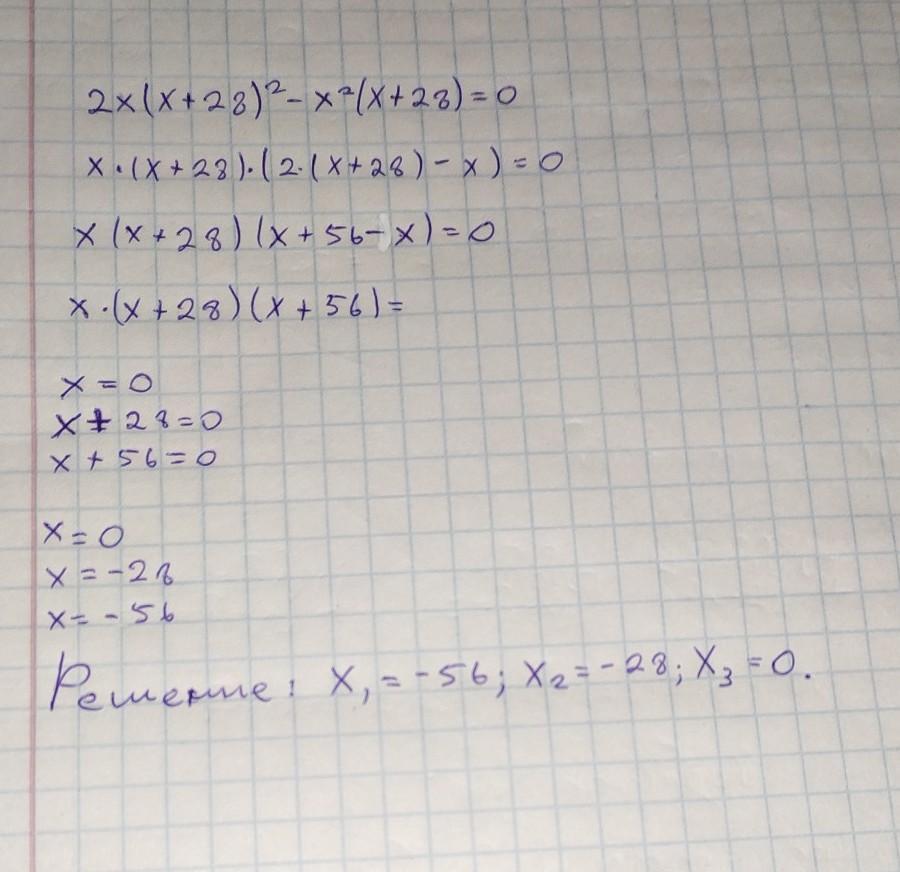 2x(x+28)²-x²(x+28)=0
x·(x+28)·(2·(x+28)-x)=0
x(x+28)(x+56-x)=0
x·(x+28)(x+56)=
x=0
x+28=0
x+56=0
x=0
x=-28
x=-56
Решение: x₁=-56; x₂=-28; x₃=0.